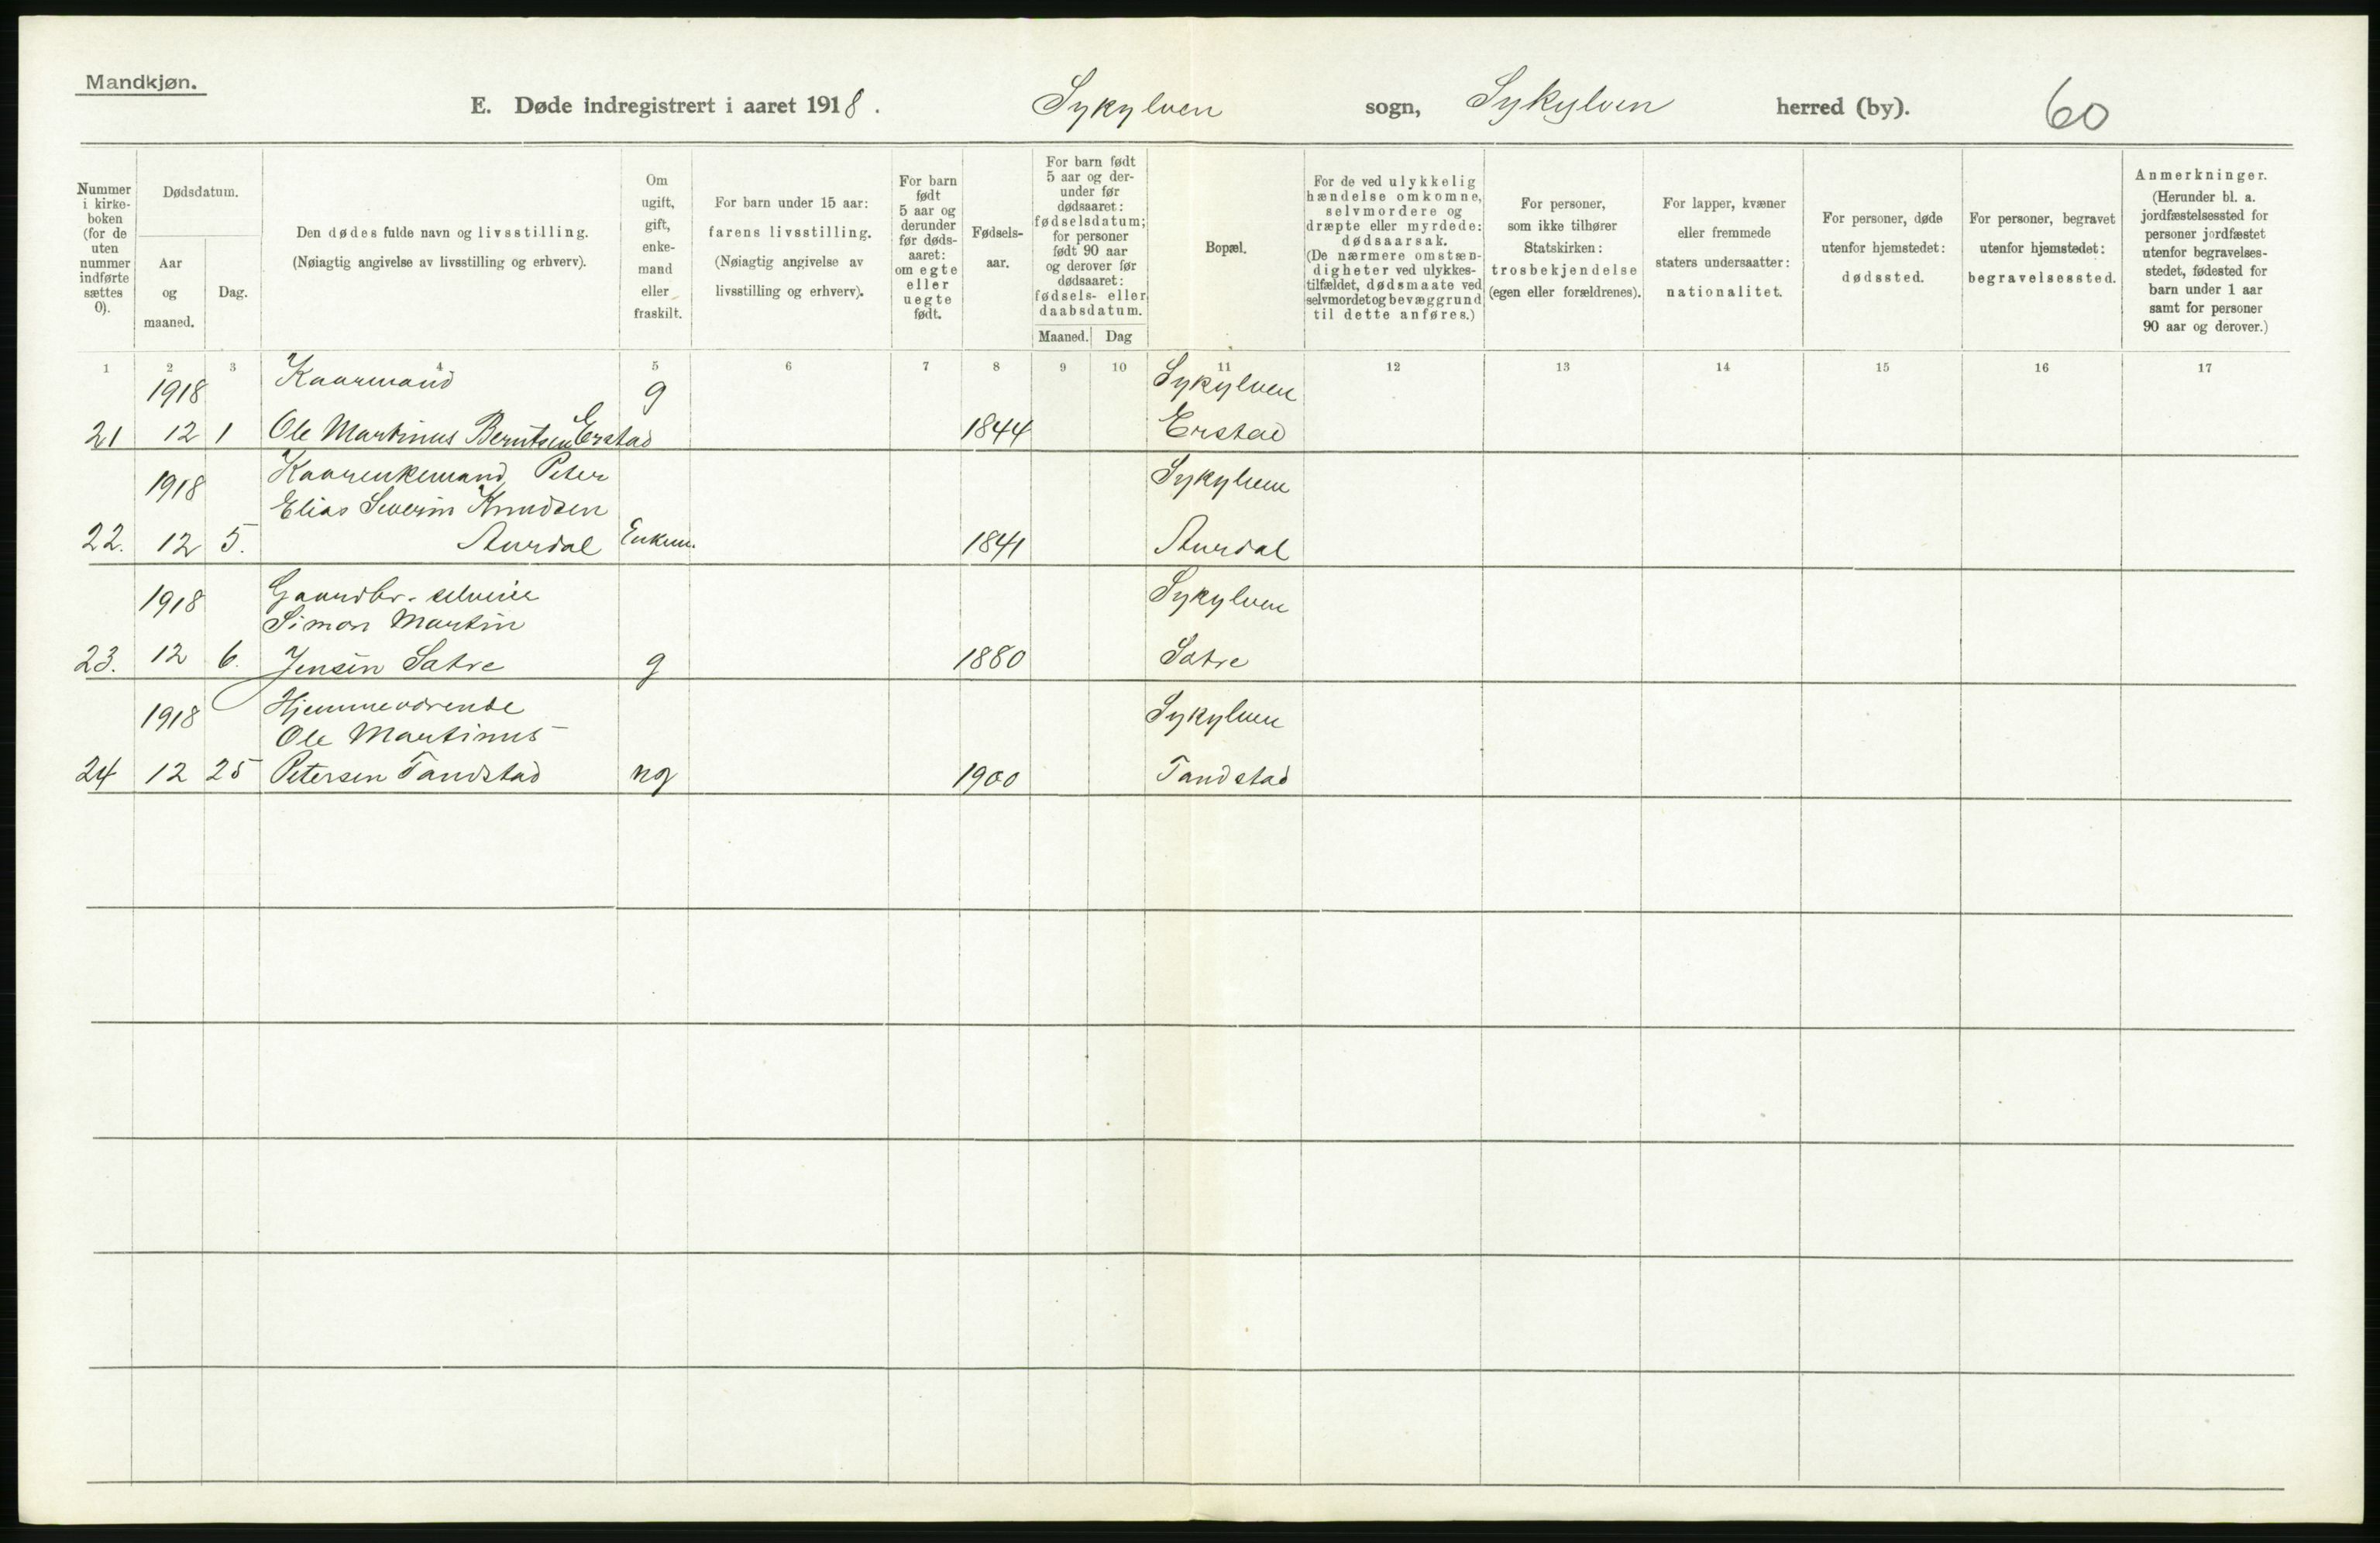 Mandkjøn.
E. Døde indregistrert i aaret 1918. Sykylven sogn, Sykylven herred (by). 60
Nummer
i kirke-
boken
(for de
uten
nummer
indførte
sættes
0).
Dødsdatum.
Aar
og
maaned.
Dag.
Den dødes fulde navn og livsstilling.
(Nøiagtig angivelse av livsstilling og erhverv).
Om
ugift,
gift,
enke-
mand
eller
fraskilt.
For barn under 15 aar:
farens livsstilling.
(Nøiagtig angivelse av
livsstilling og erhverv).
For barn
født
5 aar og
derunder
før døds-
aaret:
om egte
eller
uegte
født.
Fødsels-
aar.
For barn født
5 aar og der-
under før
dødsaaret:
fødselsdatum;
for personer
født 90 aar
og derover før
dødsaaret:
fødsels- eller
daabsdatum.
Maaned. Dag
Bopæl.
For de ved ulykkelig
hændelse omkomne,
selvmordere og
dræpte eller myrdede:
dødsaarsak.
(De nærmere omstæn-
digheter ved ulykkes-
tilfældet, dødsmaate ved
selvmordet og bevæggrund
til dette anføres.)
For personer,
som ikke tilhører
Statskirken:
trosbekjendelse
(egen eller forældrenes).
For lapper, kvæner
eller fremmede
staters undersaatter:
nationalitet.
For personer, døde
utenfor hjemstedet:
dødssted.
For personer, begravet
utenfor hjemstedet:
begravelsessted.
Anmerkninger.
(Herunder bl. a.
jordfæstelsessted for
personer jordfæstet
utenfor begravelses-
stedet, fødested for
barn under 1 aar
samt for personer
90 aar og derover.)
1 2 3 4 5 6 7 8 9 10 11 12 13 14 15 16 17
1918 Kaarmand g Sykylven
21 12 1 Ole Martinus Berntsen Erstad 1844 Erstad
1918 Kaarenkemand Peter Sykylven
Elias Severin Knudsen
22. 12 5. Aurdal Enkem. 1841 Aurdal
1918 Gaardbr. selveie Sykylven
Simon Martin
23. 12 6. Jensen Satre g 1880 Satre
1918 Hjemmeværende Sykylven
Ole Martinus
24 12 25 Petersen Tandstad ug 1900 Tandstad